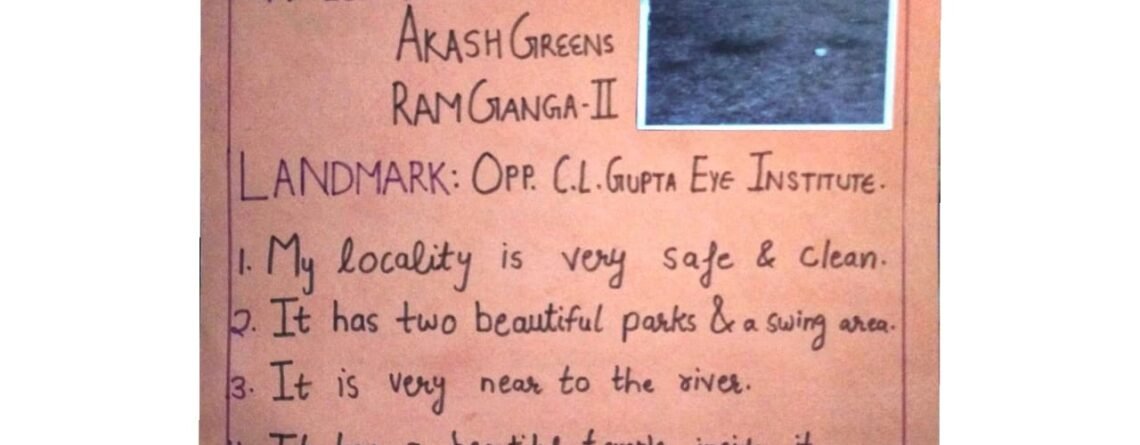 AKASH GREENS
RAM GANGA-II
LANDMARK: OPP. C.L. GUPTA EYE INSTITUTE.
1. My locality is very safe & clean.
2. It has two beautiful parks & a swing area.
3. It is very near to the river.